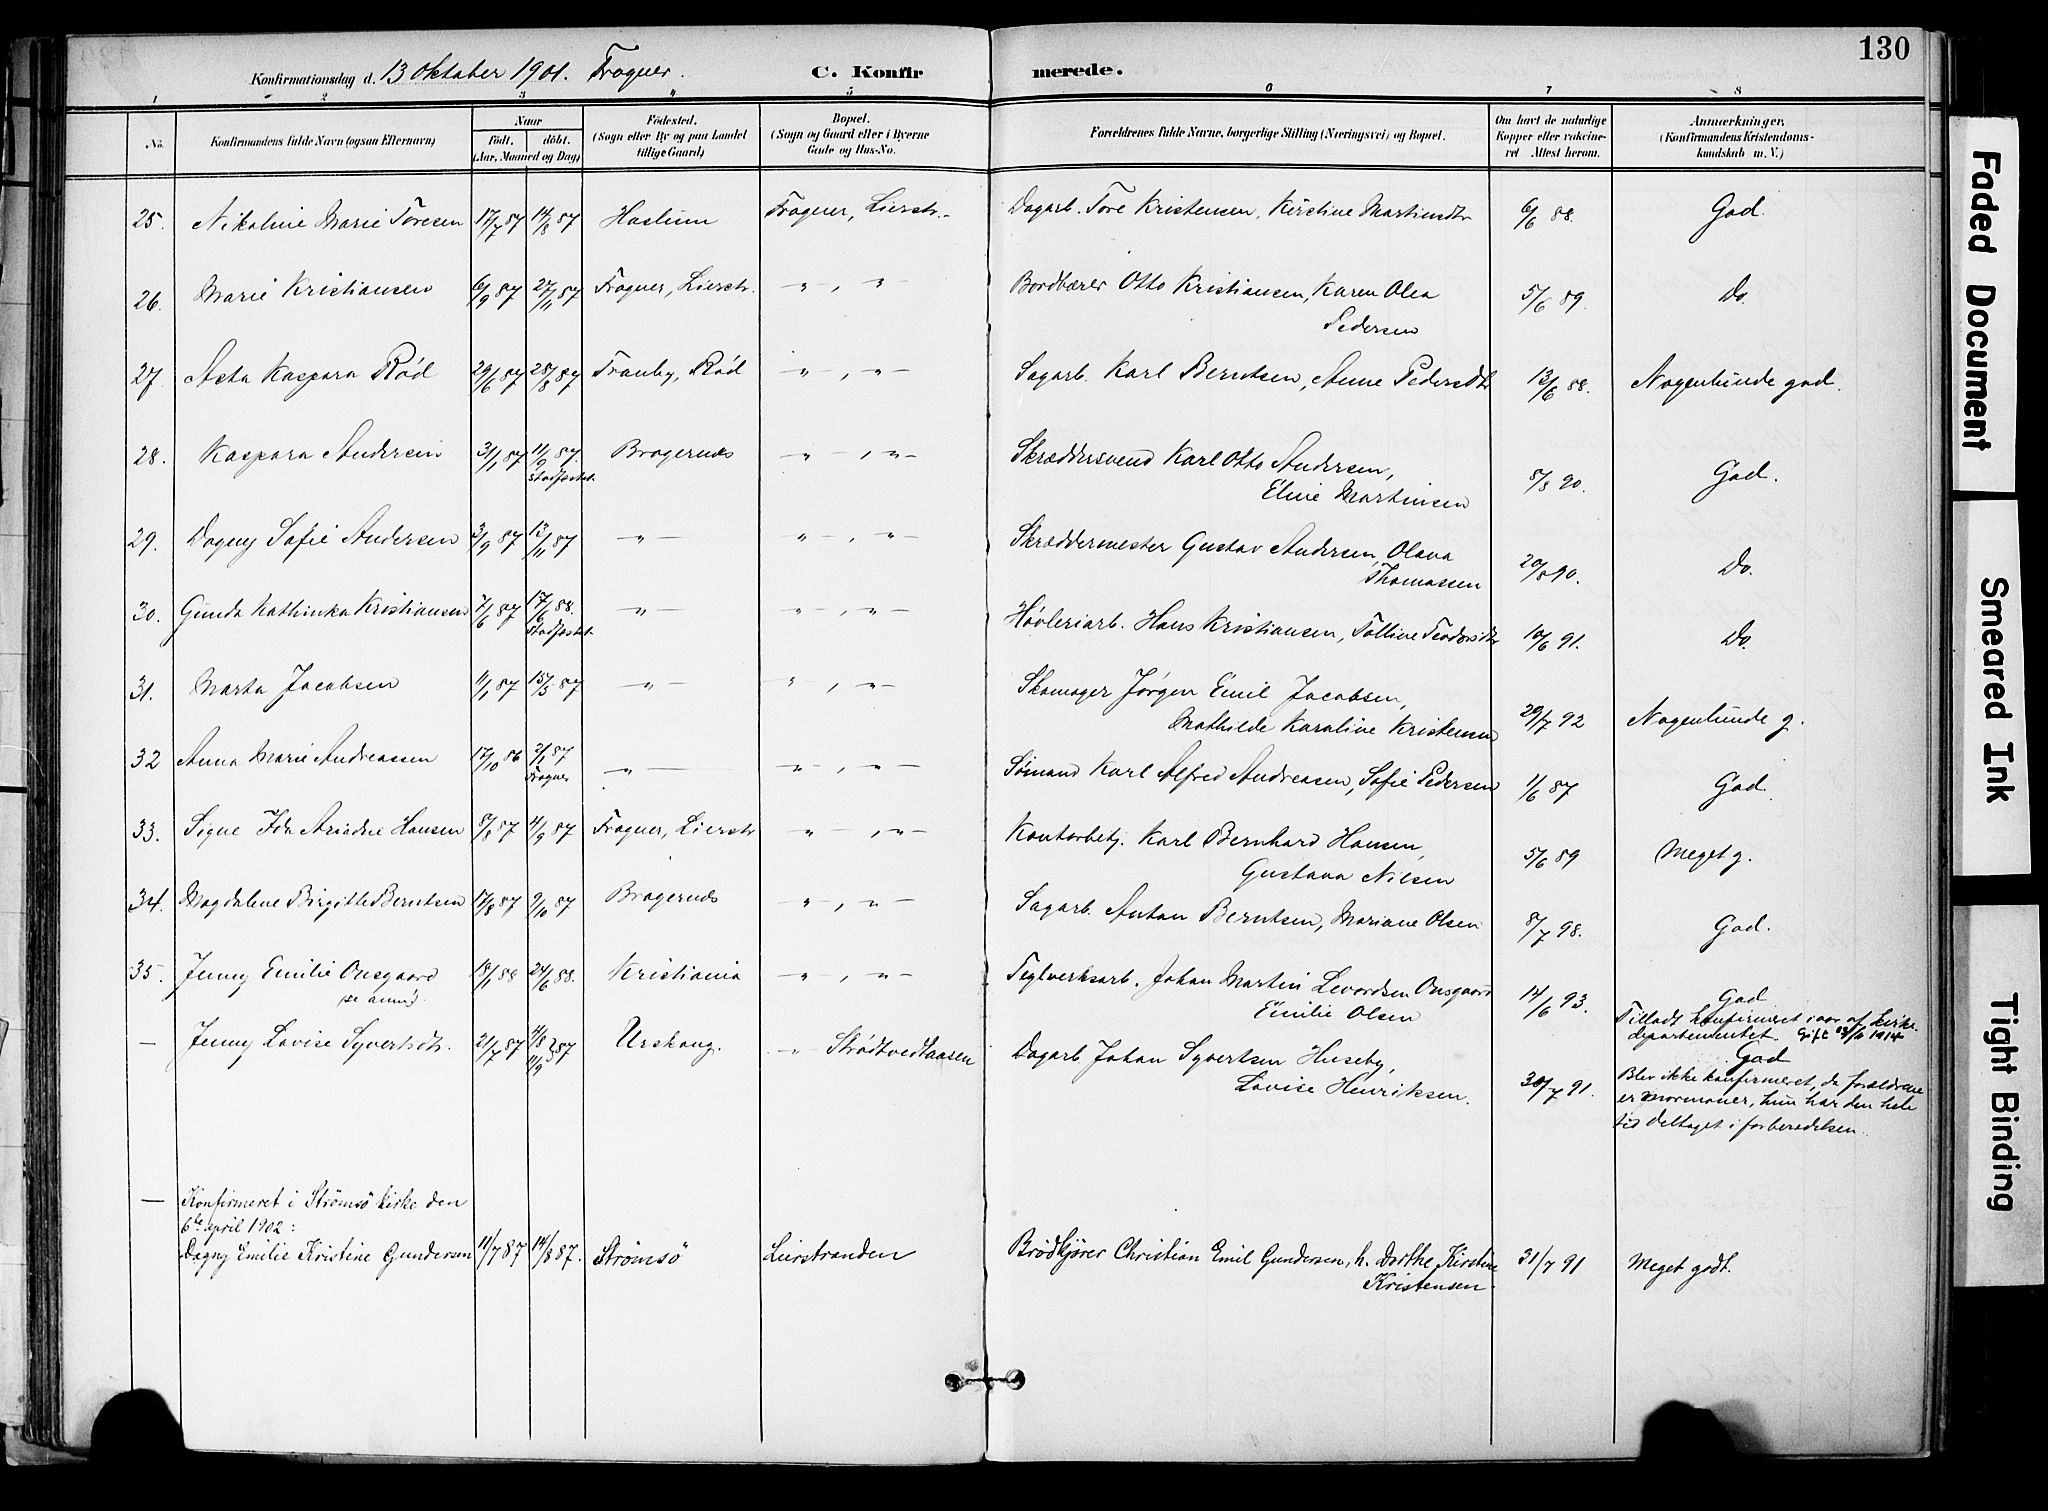 130
Konfirmationsdag d. 13 Oktober 1901. Frogner. C. Konfirmerede.
1 2 3 4 5 6 7 8
No. Konfirmandens fulde Navn (ogsaa Efternavn) Naar født. døbt. (Aar, Maaned og Dag) Fødested. (Sogn eller By og paa Landet tillige Gaard) Bopæl. (Sogn og Gaard eller i Byerne Gade og Hus-No. Forældrenes fulde Navne, borgerlige Stilling (Næringsvei) og Bopæl. Om havt de naturlige Kopper eller vakcineret Attest herom. Anmærkninger. (Konfirmandens Kristendomskundskab m. V.)
25. Nikoline Marie Toresen 17/7 87 14/8 87 Haslum Frogner, Lierstr. Dagarb. Tore Kristensen, Kirstine Martinsdtr 6/6 88. God.
26. Marie Kristiansen 6/9 87 27/11 87 Frogner, Lierstr. " — , " — Bordbærer Otto Kristiansen, Karen Olea
Pedersen 5/6 89. Do.
27. Asta Kaspara Rød 29/6 87 28/8 87 Tranby, Rød " — , " — Sagarb. Karl Berntsen, Anne Pedersdtr 13/6 88. Nogenlunde god.
28. Kaspara Andersen 31/1 87 11/9 87. Bragernæs " — , " — Skræddersvend Karl Otto Andersen,
stadfæstet. Eline Martinsen 5/8 90. God.
29. Dagny Sofie Andersen 3/9 87 13/11 87 — " — " — , " — Skræddermester Gustav Andersen, Olava
Thomassen 20/8 90. Do.
30. Gunda Kathinka Kristiansen 7/6 87 17/6 88. — " — " — , " — Høvleriarb. Hans Kristiansen, Tolline Teodorsdtr 10/6 91. Do.
Stadfæstet.
31. Marta Jacobsen 11/1 87 15/5 87 — " — " — , " — Skomager Jørgen Emil Jacobsen,
Mathilde Karoline Kristensen 29/7 92 Nogenlunde g.
32 Anna Marie Andreassen 17/10 86 2/1 87 — " — " — , " — Sømand Karl Alfred Andreasen, Sofie Pedersen 1/6 87 God.
Frogner
33. Signe Ida Ariadne Hansen 8/8 87 4/9 87 Frogner, Lierstr " — , " — Kontorbetj. Karl Bernhard Hansen,
Gustava Nilsen 5/6 89 Meget g.
34. Magdalene Birgitte Berntsen 17/8 87 9/10 87 Bragernæs " — , " — Sagarb. Anton Berntsen, Mariane Olsen 8/7 98. God.
35. Jenny Emilie Onsgaard 18/1 88 24/6 88. Kristiania " — , " — Teglverksarb. Johan Martin Levordsen Onsgaard
(se anm). Emilie Olsen 14/6 93. God
Tilladt konfirmeret i aar af kirke-
departementet. Gift 1914
— Jenny Lovise Syvertsdtr. 21/7 87 4/8 11/9 87 Urskoug. " — Strødtvedtaasen Dagarb Johan Syvertsen Huseby,
Lovise Henriksen. 30/7 91. God
Blev ikke konfirmeret, da forældrene
er mormoner, hun har den hele
tid deltaget i forberedelsen.
— Konfirmeret i Strømsø kirke den
6te april 1902:
Dagny Emilie Kristine Gundersen 11/7 87 14/8 87. Strømsö Lierstranden Brödkjører Christian Emil Gundersen, h. Dorthe Kirstine
Kristensen 31/7 91 Meget godt.
Faded Document
Smeared Ink
Tight Binding